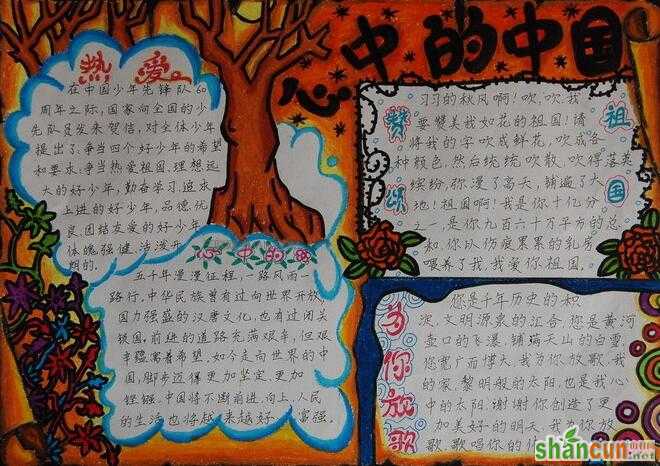 心中的中国
热爱
在中国少年先锋队60
周年之际，国家向全国的少
先队员发来贺信，对全体少年
提出了：争当四个好少年的希望
和要求：争当热爱祖国，理想远
大的好少年，勤奋学习，追求
上进的好少年，品德优
良，团结友爱的好少年
体魄强健，活泼开
朗的。
心中的
五千年漫漫征程，一路风雨一
路行，中华民族曾有过向世界开放，
国力强盛的汉唐文化，也有过闭关
锁国，前进的道路充满艰辛，但艰
辛蕴寓着希望，如今走向世界的中
国，脚步迈得更加坚定，更加
铿锵。中国将不断前进，向上，人民
的生活也将越来越好，富强。
赞颂祖国
习习的秋风啊！吹，吹，我
要赞美我如花的祖国！请
将我的字吹成鲜花，吹成各
种颜色，然后统统吹散，吹得落英
缤纷，你漫了高天，铺遍了大
地！祖国啊！我是你十亿分
之一，是你九百六十万平方的总
和，你以伤痕累累的乳房
喂养了我，我爱你祖国。
为你放歌
您是千年历史的积
淀，文明源泉的汇合，您是黄河
壶口的飞瀑，铺瑞天山的白雪，
您宽广而博大，我为你放歌，我
的家，黎明般的太阳，也是我心
中的太阳，谢谢你创造了更
加美好的明天，我为你放
歌，歌唱你的
shancun
.net